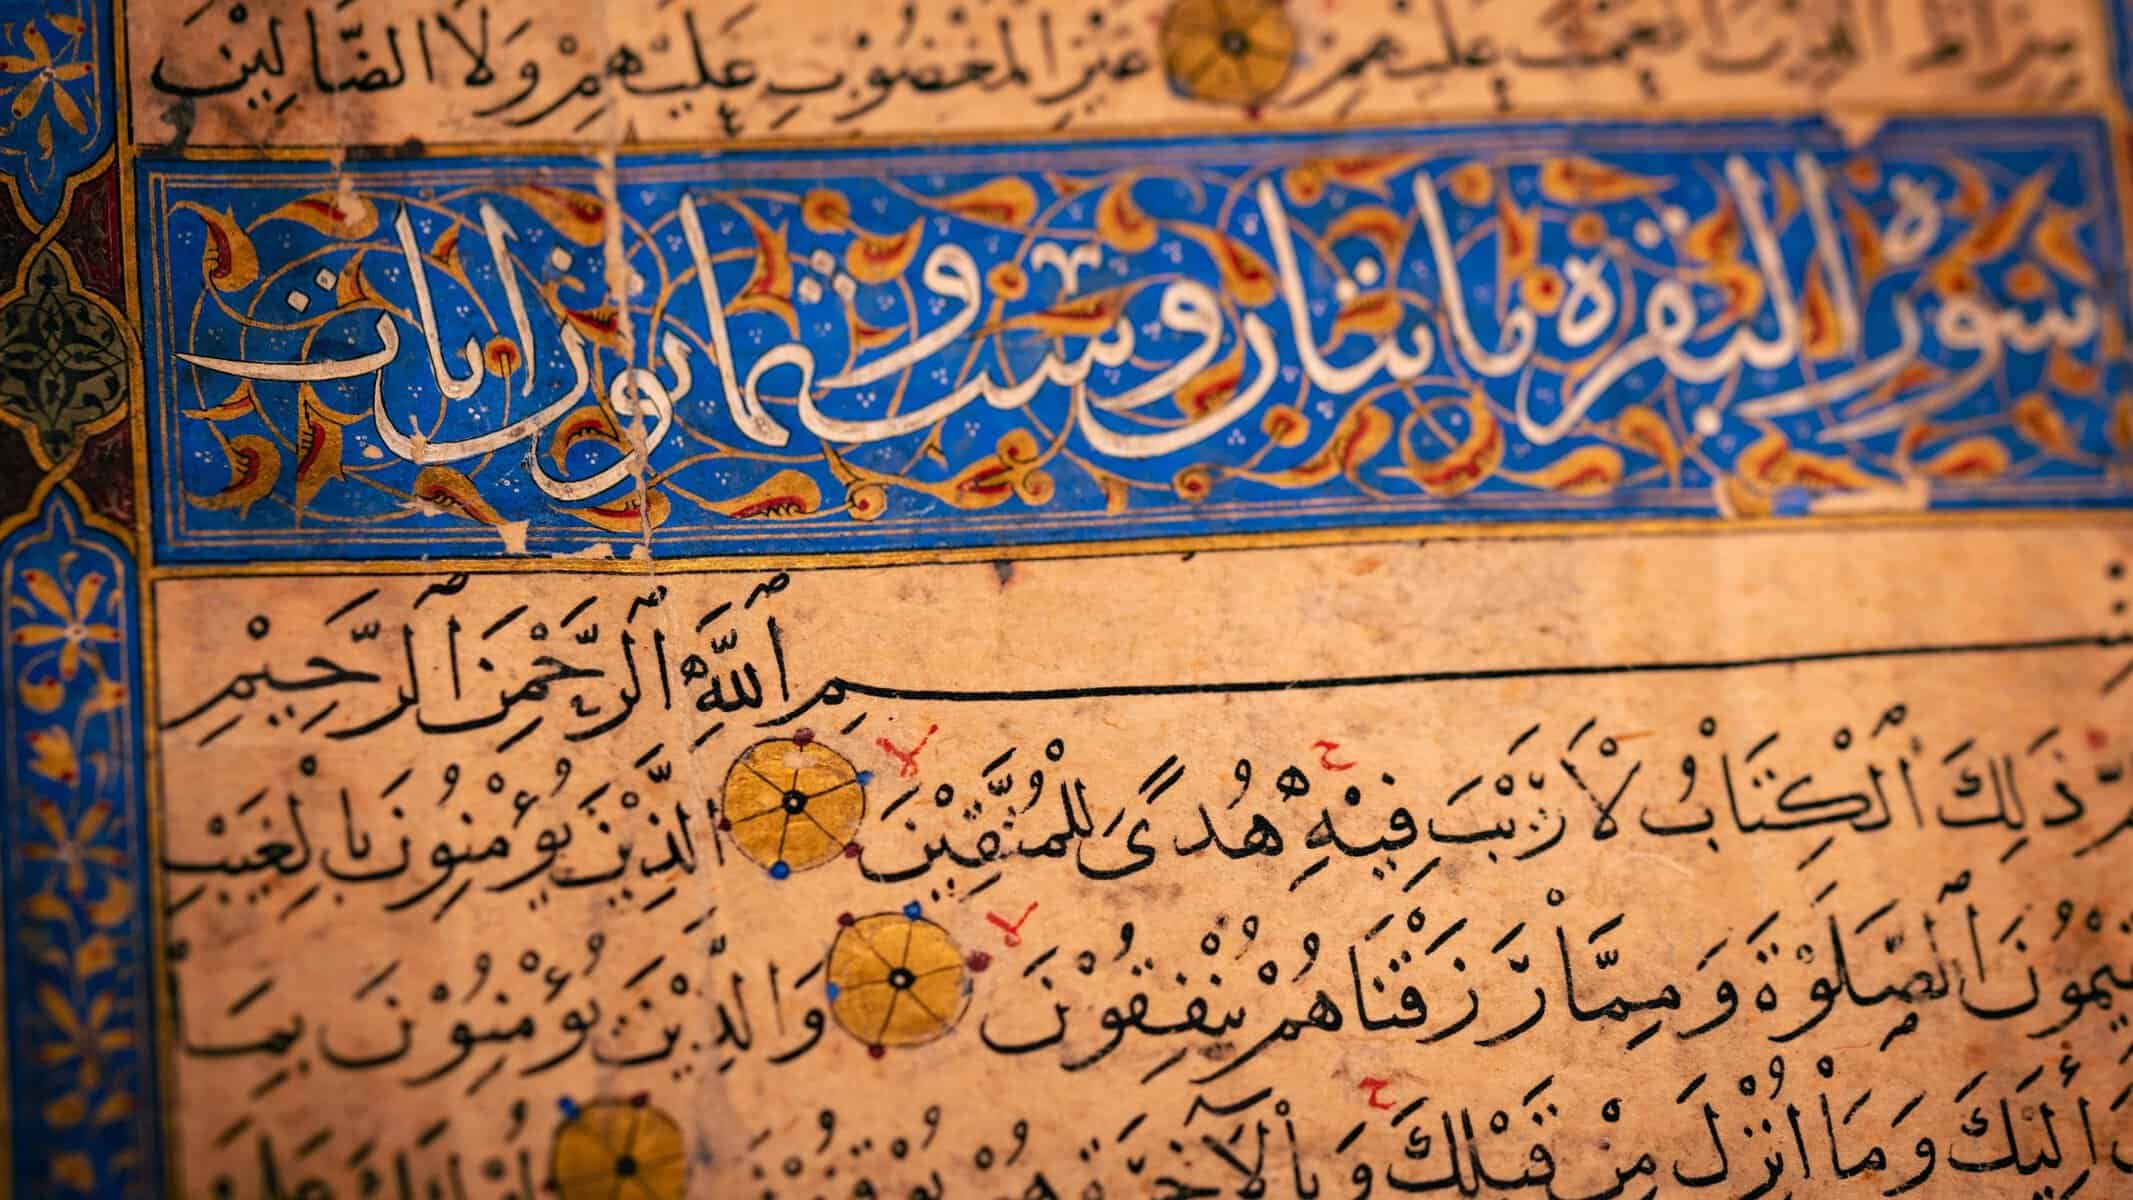 صِرَاطَ الَّذِينَ أَنْعَمْتَ عَلَيْهِمْ غَيْرِ الْمَغْضُوْبِ عَلَيْهِمْ وَلَا الضَّالِّيْنَ
سورة البقرة مائتان وست وثمانون ايات
بِسْمِ ٱللَّهِ ٱلرَّحْمٰنِ ٱلرَّحِيْمِ
ذَلِكَ ٱلْكِتَابُ لَا رَيْبَ فِيْهِ هُدًى لِلْمُتَّقِيْنَ الَّذِيْنَ يُؤْمِنُوْنَ بِالْغَيْبِ
ٱلصَّلٰوةَ وَمِمَّا رَزَقْنَاهُمْ يُنْفِقُوْنَ وَالَّذِيْنَ يُؤْمِنُوْنَ بِمَا
إِلَيْكَ وَمَا أُنْزِلَ مِنْ قَبْلِكَ وَبِالْآخِرَةِ هُمْ يُوْقِنُوْنَ